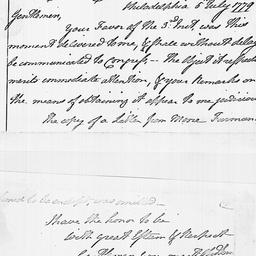 Philadelphia 5 July 1779
Gentlemen,
Your Favor of the 3d Inst. was this
moment delivered to me, & shall without delay
be communicated to Congress — the Object it respects
merits immediate attention, & your Remarks on
the means of obtaining it appear to me judicious
The copy of a Letter from
was
I have the honor to be
With great Esteem & Respect